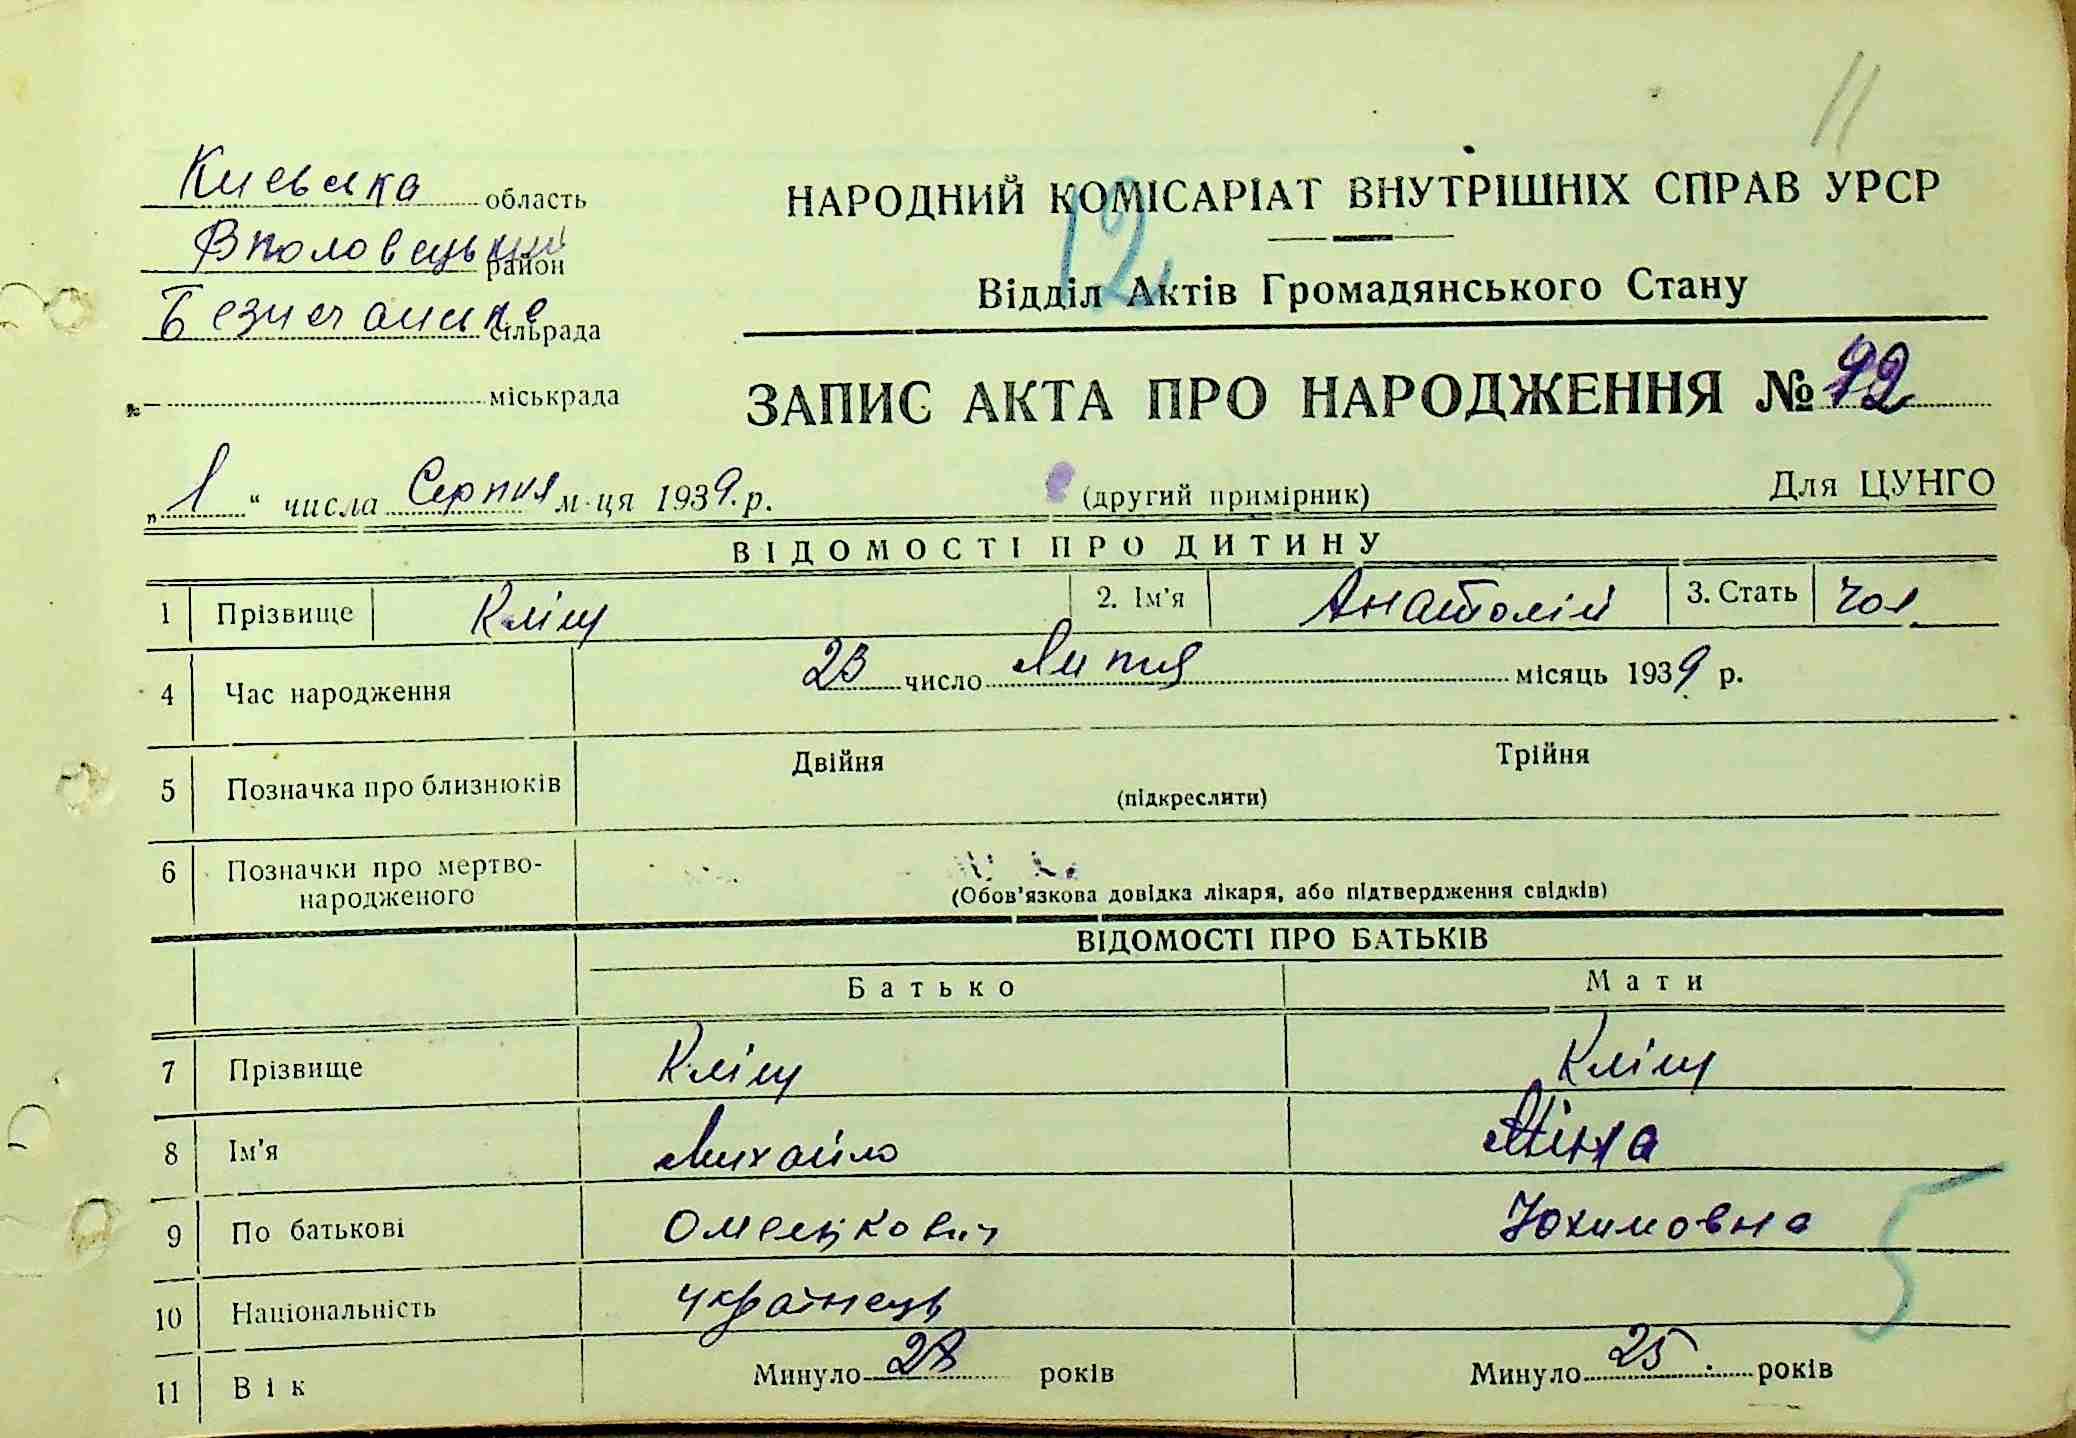 11
Киевська область
Вполовецький район
Безпечанська сільрада
міськрада
НАРОДНИЙ КОМІСАРІАТ ВНУТРІШНІХ СПРАВ УРСР
12
Відділ Актів Громадянського Стану
ЗАПИС АКТА ПРО НАРОДЖЕННЯ № 12
„1“ числа Серпня м-ця 1939 р.
(другий примірник) Для ЦУНГО
ВІДОМОСТІ ПРО ДИТИНУ
1 Прізвище Кліщ 2. Ім'я Анатолій 3. Стать чол
4 Час народження 23 число Липня місяць 1939 р.
5 Позначка про близнюків Двійня Трійня
(підкреслити)
6 Позначки про мертво-
народженого (Обов'язкова довідка лікаря, або підтвердження свідків)
ВІДОМОСТІ ПРО БАТЬКІВ
Батько Мати
7 Прізвище Кліщ Кліщ
8 Ім'я Михайло
9 По батькові Юхимовна
5
10 Національність українець
11 Вік Минуло 28 років Минуло 25 років